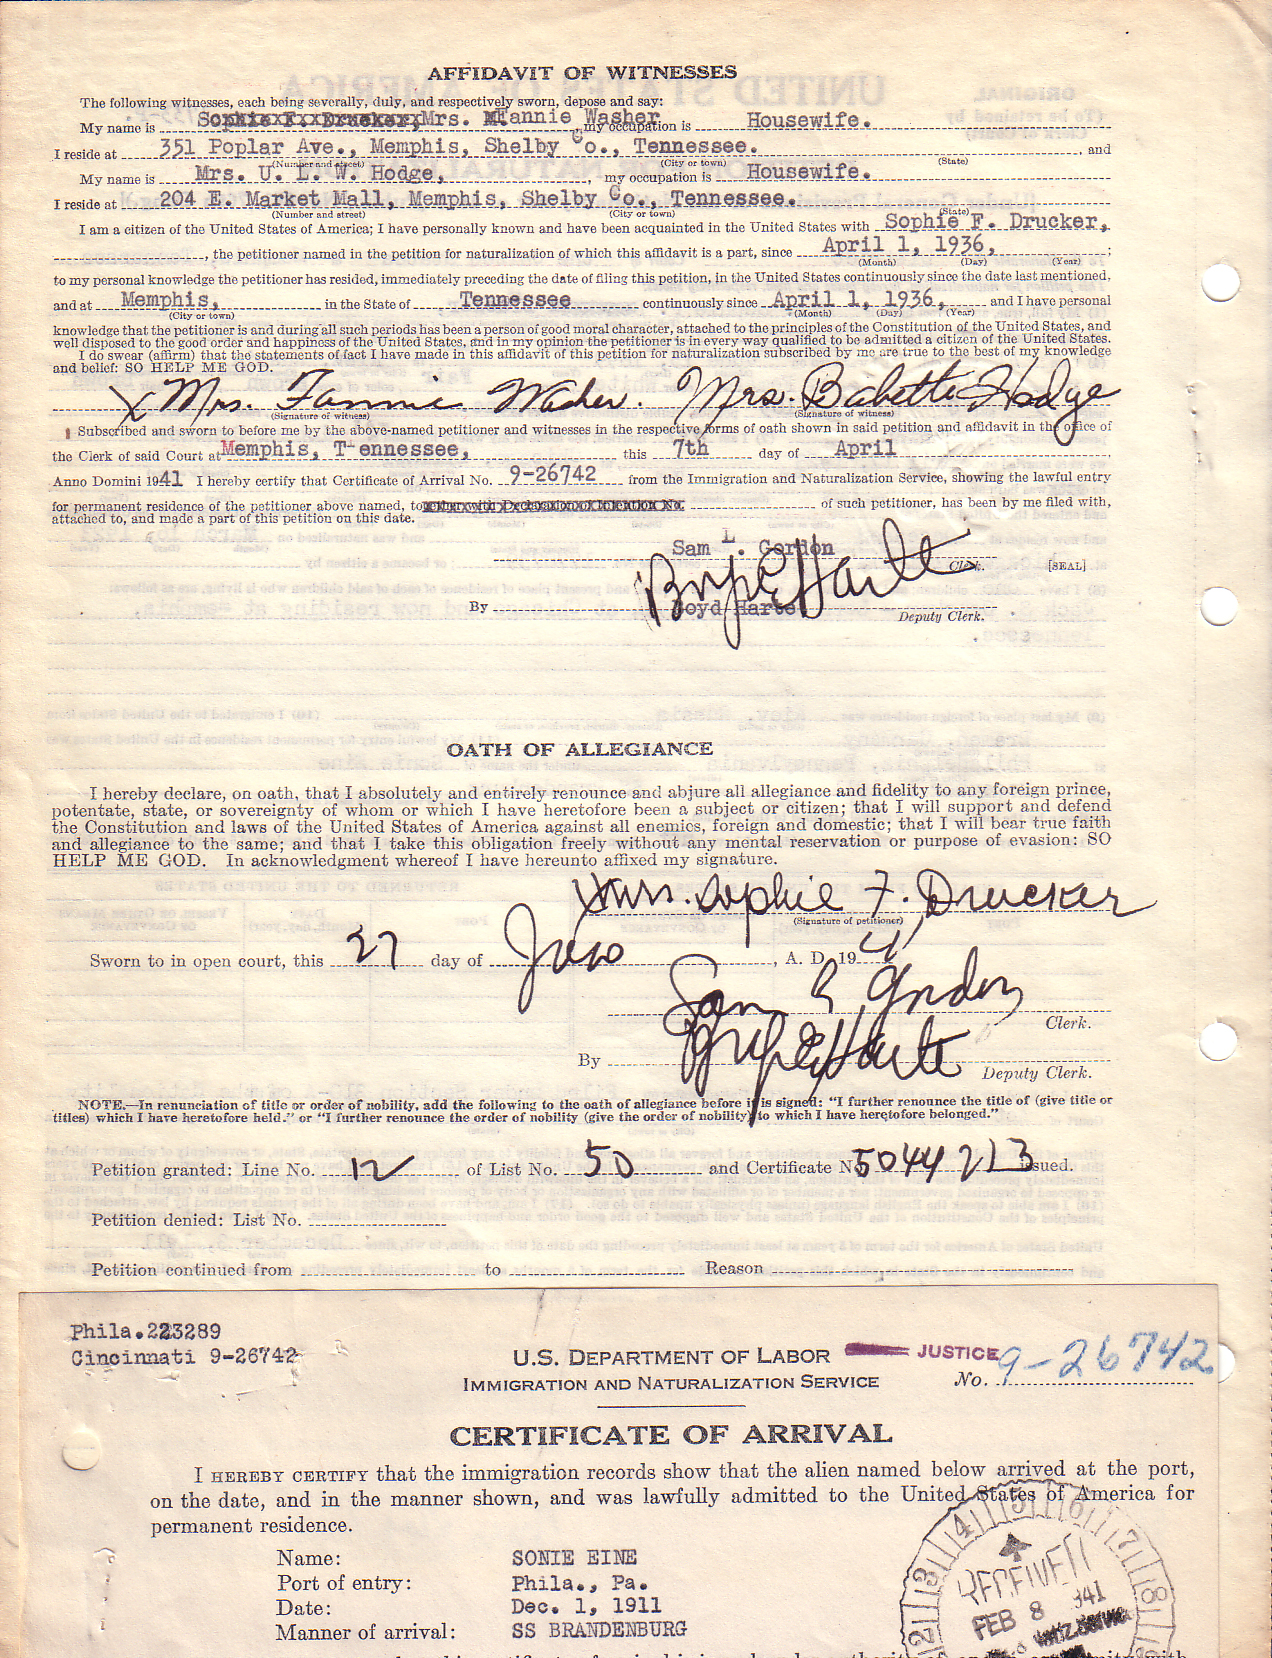 AFFIDAVIT OF WITNESSES
The following witnesses, each being severally, duly, and respectively sworn, depose and say:
My name is Sophie F. Drucker, Mrs. Fannie Washer, my occupation is Housewife.
I reside at 351 Poplar Ave., Memphis, Shelby Co., Tennessee. and
(Number and street) (City or town) (State)
My name is Mrs. U. L. W. Hodge, my occupation is Housewife.
I reside at 204 E. Market Mall, Memphis, Shelby Co., Tennessee.
(Number and street) (City or town) (State)
I am a citizen of the United States of America; I have personally known and have been acquainted in the United States with Sophie F. Drucker,
, the petitioner named in the petition for naturalization of which this affidavit is a part, since April 1, 1936, ;
(Month) (Day) (Year)
to my personal knowledge the petitioner has resided, immediately preceding the date of filing this petition, in the United States continuously since the date last mentioned,
and at Memphis, in the State of Tennessee continuously since April 1, 1936, and I have personal
(City or town) (Month) (Day) (Year)
knowledge that the petitioner is and during all such periods has been a person of good moral character, attached to the principles of the Constitution of the United States, and
well disposed to the good order and happiness of the United States, and in my opinion the petitioner is in every way qualified to be admitted a citizen of the United States.
I do swear (affirm) that the statements of fact I have made in this affidavit of this petition for naturalization subscribed by me are true to the best of my knowledge
and belief: SO HELP ME GOD.
X Mrs. Fannie Washer. Mrs. Babette Hodge
(Signature of witness) (Signature of witness)
Subscribed and sworn to before me by the above-named petitioner and witnesses in the respective forms of oath shown in said petition and affidavit in the office of
the Clerk of said Court at Memphis, Tennessee, this 7th day of April
Anno Domini 1941 I hereby certify that Certificate of Arrival No. 9-26742 from the Immigration and Naturalization Service, showing the lawful entry
for permanent residence of the petitioner above named, together with Declaration of Intention No. of such petitioner, has been by me filed with,
attached to, and made a part of this petition on this date.
Sam L. Gordon
Clerk. [SEAL]
By Boyd Harte
Deputy Clerk.
OATH OF ALLEGIANCE
I hereby declare, on oath, that I absolutely and entirely renounce and abjure all allegiance and fidelity to any foreign prince,
potentate, state, or sovereignty of whom or which I have heretofore been a subject or citizen; that I will support and defend
the Constitution and laws of the United States of America against all enemies, foreign and domestic; that I will bear true faith
and allegiance to the same; and that I take this obligation freely without any mental reservation or purpose of evasion: SO
HELP ME GOD. In acknowledgment whereof I have hereunto affixed my signature.
X Mrs. Sophie F. Drucker
(Signature of petitioner)
Sworn to in open court, this 27 day of , A. D. 1941
Sam L Gordon
Clerk.
By
Deputy Clerk.
NOTE.—In renunciation of title or order of nobility, add the following to the oath of allegiance before it is signed: "I further renounce the title of (give title or
titles) which I have heretofore held." or "I further renounce the order of nobility (give the order of nobility) to which I have heretofore belonged."
Petition granted: Line No. 12 of List No. 50 and Certificate No. 5044213 issued.
Petition denied: List No.
Petition continued from to Reason
Phila.223289
Cincinnati 9-26742
U.S. DEPARTMENT OF LABOR JUSTICE
IMMIGRATION AND NATURALIZATION SERVICE
No. 9-26742
CERTIFICATE OF ARRIVAL
I HEREBY CERTIFY that the immigration records show that the alien named below arrived at the port,
on the date, and in the manner shown, and was lawfully admitted to the United States of America for
permanent residence.
Name: SONIE EINE
Port of entry: Phila., Pa.
Date: Dec. 1, 1911
Manner of arrival: SS BRANDENBURG
2 3 4 5 6 7 8
RECEIVED
FEB 8 1941